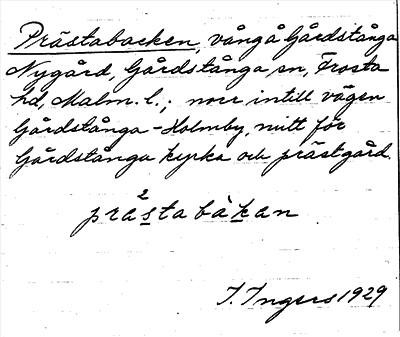 Prästabacken, vång å Gårdstånga
Nygård, Gårdstånga sn, Frosta
hd, Malm. l.; norr intill vägen
Gårdstånga-Holmby, mitt för
Gårdstånga kyrka och prästgård.
2
prästabàkan
I. Ingers 1929